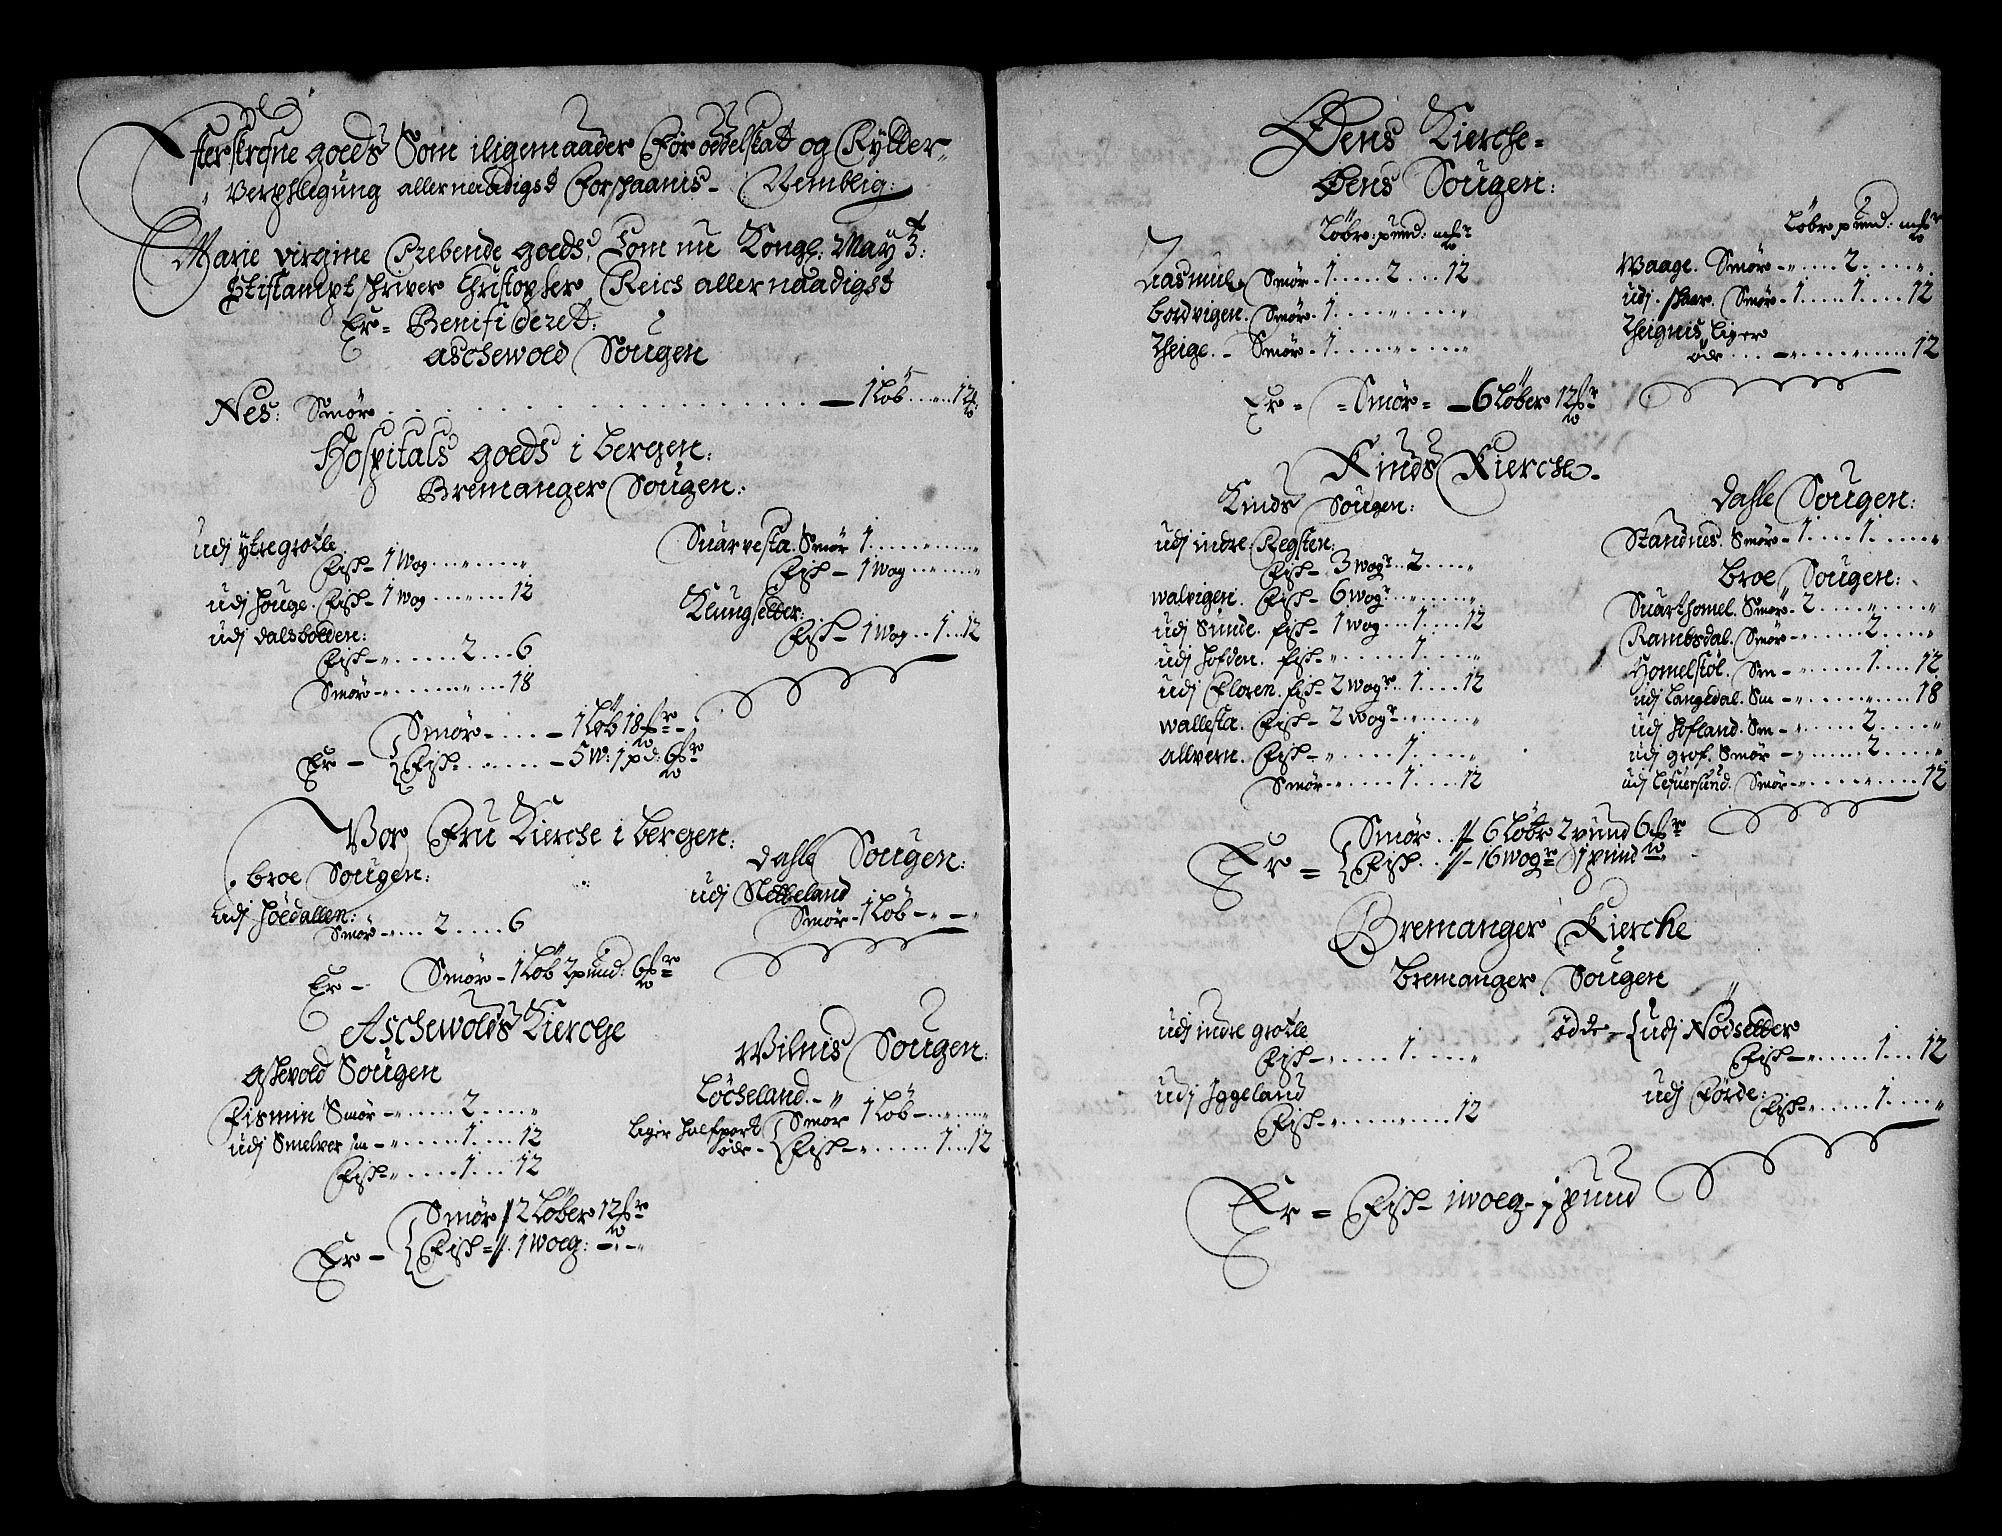 Efterskrefne goeds Som iligemaader For oddelskat og Rytter
Verpflegung allernaadigst Forskaanis - Nemblig:
Marie virgine Prebende goeds, Som nu Kongl: Mayt3:
Stiftampt skriver Christopher Reich allernaadigst
Er = Benificeret:
Aschewold Sougen
Nes: Smør . . . . 1 Löb . . 12
Hospitals goeds i bergen:
Bremanger Sougen:
udj ytregrotle
Fisk - 1 Wog
udj houge. Fisk - 1 wog . . . 12
udj dalsbotten:
Fisk - . . . 2 . . . 6
Smør - . . . . . . 18
Suarvesta. Smör 1
Fisk - 1 wog
Klungsetter:
Fisk - 1 Wog . . 1 . . 12
Smør - . . . - 1 Löb 18
Er - Fisk - . . . - 5 W: 1 pd: 6
Vor Fru Kierche i bergen:
broe Sougen:
udj höedallen:
Smør - . . . 2 . . . 6
Dahle Sougen:
udj Stobeland
Smør - 1 Löb
Er - Smør - 1 Löb 2 pund: 6
Aschewolds Kierche
Askevold Sougen
Fismin Smör - . . . 2
udj Smelver sm - . . . 1 . . . 12
Fisk - . . . 1 . . . 12
Wilnis Sougen:
Löcheland. - Smør 1 Löb
liger halfpart
øde - Fisk - . . . 1 . . 12
Smør // 2 Löber 12
Er - Fisk = // . 1 woeg:
Øens Kierche =
Øens Sougen:
Löbr: pund: mkr
Rasmule Smör - 1 . . . 2 . . . 12
bordvigen. Smör - 1
Theige. - Smör - 1
Löbr: pund: mkr
Waage. Smör - . . . 2
udj. skaar. Smör - 1 . . . 1 . . . 12
Theignis liger
øde . . . 12
Er = = Smør = - 6 Löber 12
Kinds Kierche -
Kinds Sougen:
udj indre Regsten:
Fisk - 3 wogr . . 2
walvigen. Fisk - 6 wogr
udj Sunde. fisk - 1 wog . . . 1 . . . 12
udj hofden. fisk - . . . 1
udj Floren. fisk - 2 wogr . . 1 . . . 12
wallesta. Fisk - 2 wogr
allvern. Fisk - . . . 1
Smör - . . . 1 . . . 12
Dahle Sougen:
Standnes. Smör - 1 . . . 1
broe Sougen:
Suarthomel. Smör - 2
Rambsdal. Smör - . . . 2
Homelstöl. Sm - . . . 1 . . . 12
udj Langedal. Sm - . . . 18
udj hofland. Sm - . . . 2
udj grof. Smör - . . . 2
udj Lefuersund. Smör - . . . 12
Smør . . // 6 Löbr 2 pund 6
Er = Fisk. . // - 16 wogr 1 pund
Bremanger Kierche
bremanger Sougen
udj indre grotle
Fisk - . . . 1
udj Iggeland
Fisk - . . . 12
ödde - udj Nödsetter
Fisk - . . . 1 . . . 12
udj Förde:
Fisk - . . . 1
Er = Fisk - 1 woeg - 1 pund